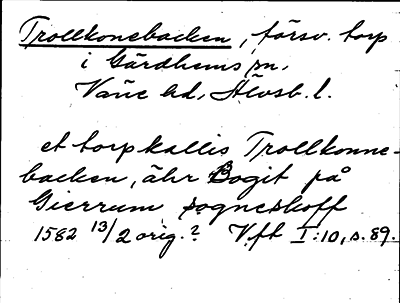 Trollkonebacken, försv. torp
i Gärdhems sn,
Väne hd, Älvsb. l.
et torp kallis Trollkonne-
backen, ähr Bögit på
Gierrum sogneskoff
1582 13/2 orig.? Vfh I:10, s. 89.